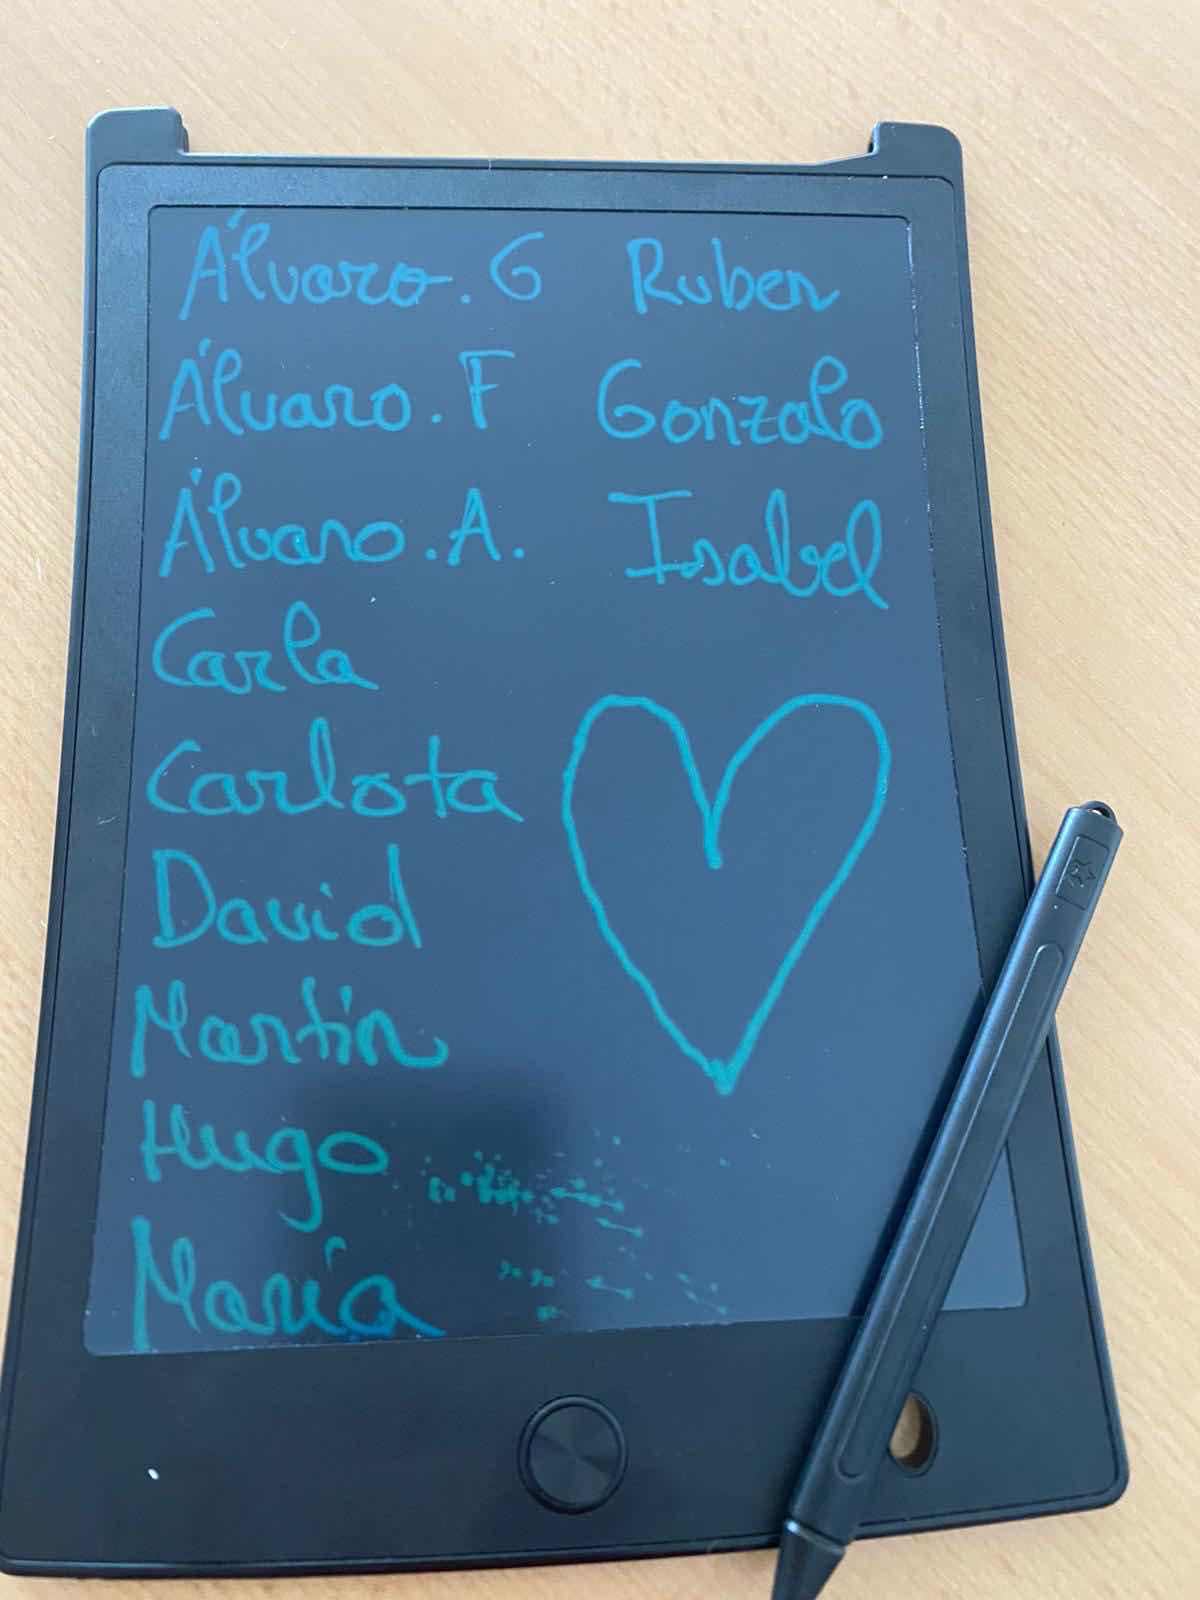 Álvaro. G
Álvaro. F
Álvaro. A.
Carla
Carlota
David
Martín
Hugo
María
Ruben
Gonzalo
Isabel